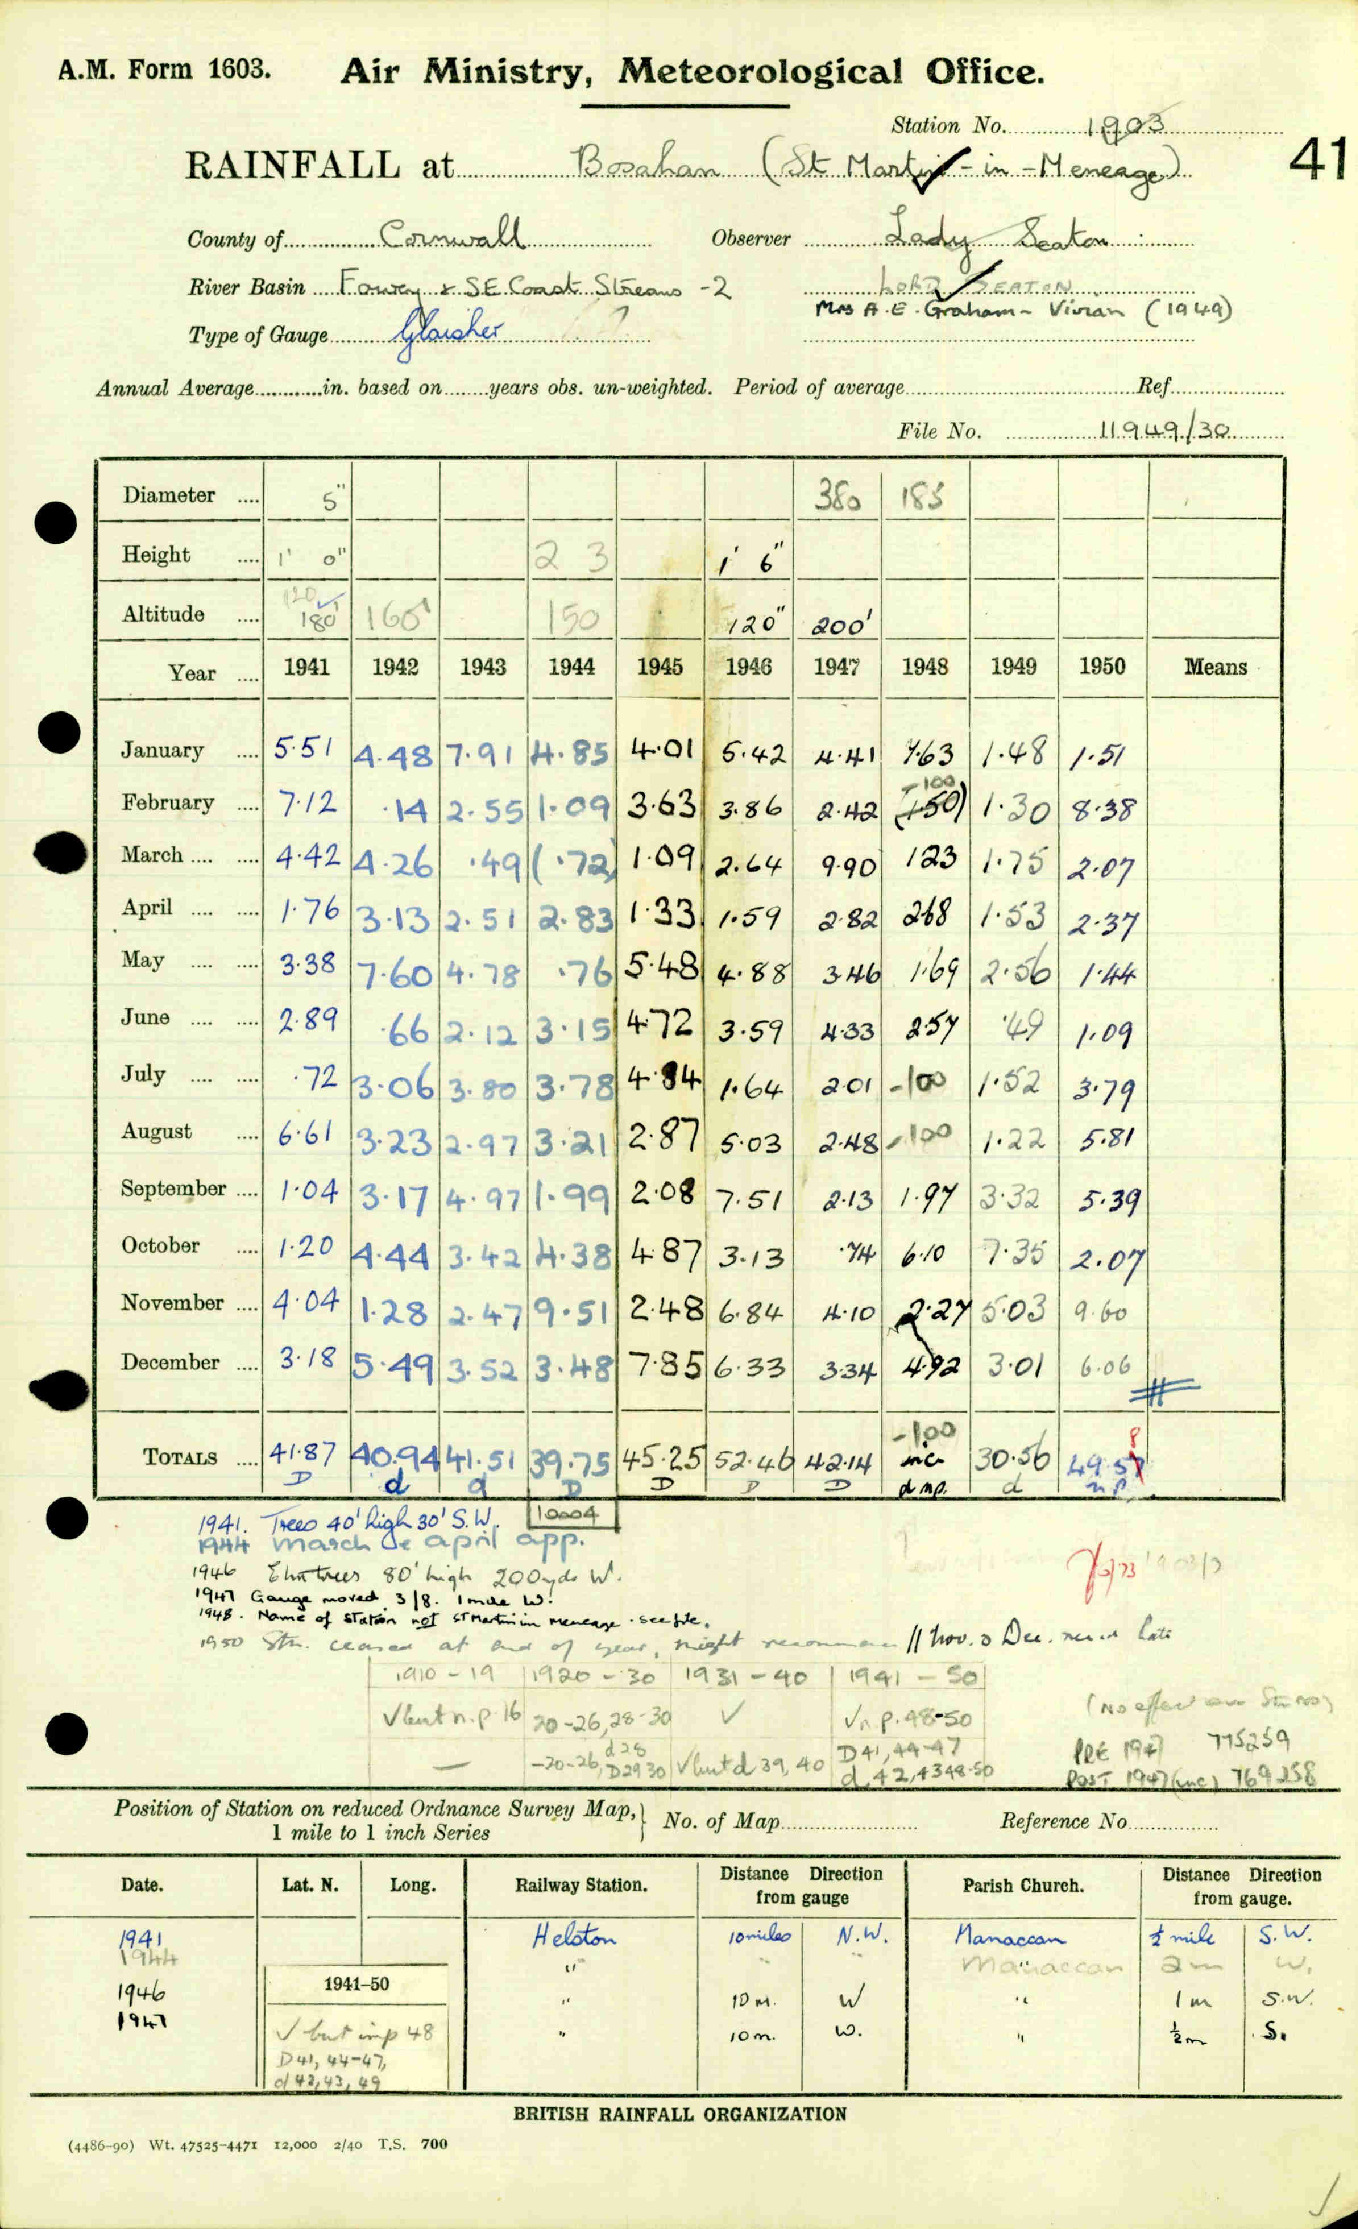 A.M. Form 1603. Air Ministry, Meteorological Office.
Station No. 1903
41
RAINFALL at Bosahan (St Martin-in-Meneage)
County of Cornwall Observer Lady Seaton
River Basin Fowey & SE Coast Streams -2 LORD SEATON
Mrs A.E. Graham-Vivian (1949)
Type of Gauge Glaisher
Annual Average in. based on years obs. un-weighted. Period of average Ref.
File No. 11949/30
Diameter .... 5" 380 185
Height .... 1' 0" 2 3 1' 6"
120
Altitude .... 180' 160' 150 120" 200'
Year .... 1941 1942 1943 1944 1945 1946 1947 1948 1949 1950 Means
January .... 5.51 4.48 7.91 4.85 4.01 5.42 4.41 7.63 1.48 1.51
-100
February .... 7.12 .14 2.55 1.09 3.63 3.86 2.42 (1.50) 1.30 8.38
March .... .... 4.42 4.26 .49 (.72) 1.09 2.64 9.90 123 1.75 2.07
April .... .... 1.76 3.13 2.51 2.83 1.33 1.59 2.82 268 1.53 2.37
May .... .... 3.38 7.60 4.78 .76 5.48 4.88 3.46 1.69 2.56 1.44
June .... .... 2.89 .66 2.12 3.15 4.72 3.59 4.33 2.57 .49 1.09
July .... .... .72 3.06 3.80 3.78 4.84 1.64 2.01 -100 1.52 3.79
August .... 6.61 3.23 2.97 3.21 2.87 5.03 2.48 -100 1.22 5.81
September .... 1.04 3.17 4.97 1.99 2.08 7.51 2.13 1.97 3.32 5.39
October .... 1.20 4.44 3.42 4.38 4.87 3.13 .74 6.10 7.35 2.07
November .... 4.04 1.28 2.47 9.51 2.48 6.84 4.10 2.27 5.03 9.60
December .... 3.18 5.49 3.52 3.48 7.85 6.33 3.34 4.92 3.01 6.06
-100 8
TOTALS .... 41.87 40.94 41.51 39.75 45.25 52.46 42.14 inc 30.56 49.57
D d d D D D D d n.p. d n.p.
1941. Trees 40' high 30' S.W. 10004
1944 March & April app.
1946 Elm trees 80' high 200yds W.
1947 Gauge moved 3/8. 1 mile W.
1948. Name of station not St Martin in Meneage. see file.
1950 Stn. ceased at end of year, might recommence // Nov. & Dec. rec'd late
1910-19 1920-30 1931-40 1941-50
V but n.p. 16 20-26, 28-30 ✓ V n.p. 48-50
(No effect on Stn No)
— -20-26, d28 D29 30 V but d 39, 40 D 41, 44-47 d 42, 43 48-50
PRE 1947 775259
POST 1947 (inc) 769258
Position of Station on reduced Ordnance Survey Map, 1 mile to 1 inch Series No. of Map Reference No.
Date. Lat. N. Long. Railway Station. Distance Direction from gauge Parish Church. Distance Direction from gauge.
1941 Helston 10 miles N.W. Manaccan ½ mile S.W.
1944 " " " Manaccan 2m W.
1946 " 10 m. W " 1 m S.W.
1947 " 10 m. W. " ½m S.
1941-50
V but imp 48
D 41, 44-47,
d 42, 43, 49
BRITISH RAINFALL ORGANIZATION
(4486-90) Wt. 47525-4471 12,000 2/40 T.S. 700